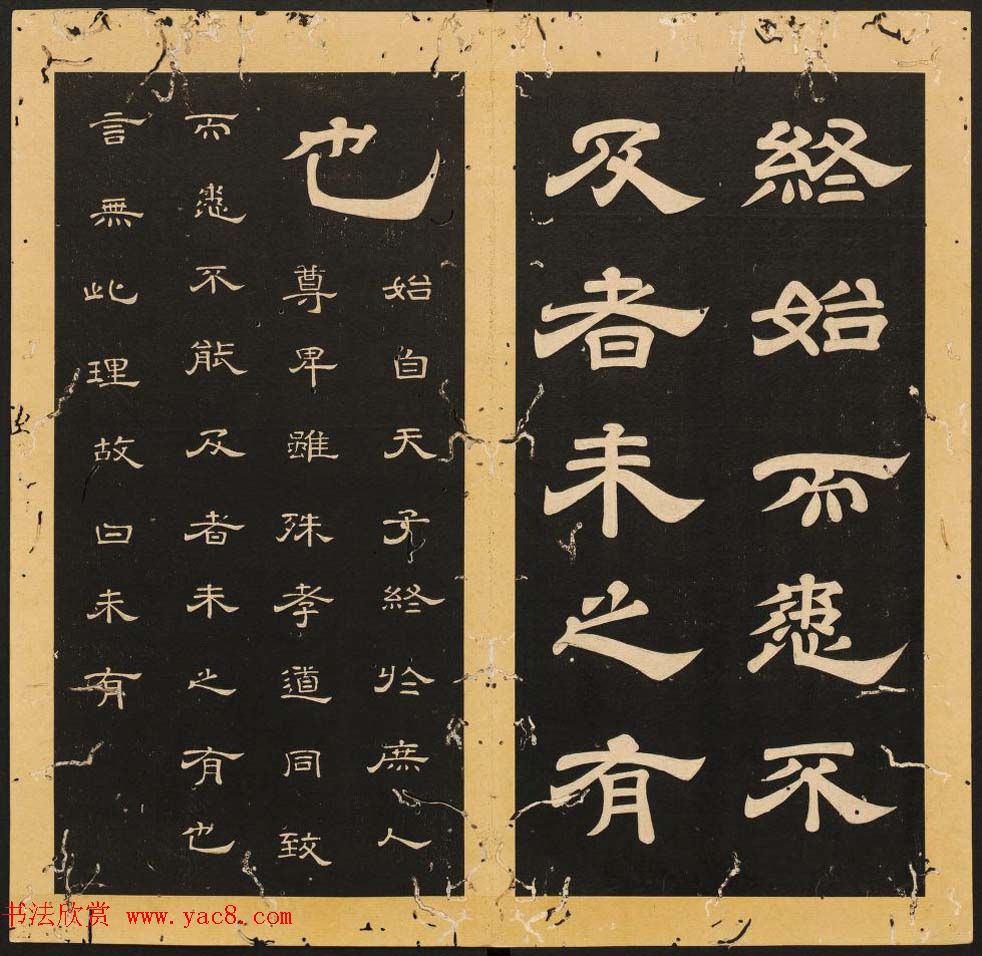 終始而患不
及者未之有
也
始自天子終於庶人
尊卑雖殊孝道同致
而患不能及者未之有也
言無此理故曰未有
书法欣赏 www.yac8.com